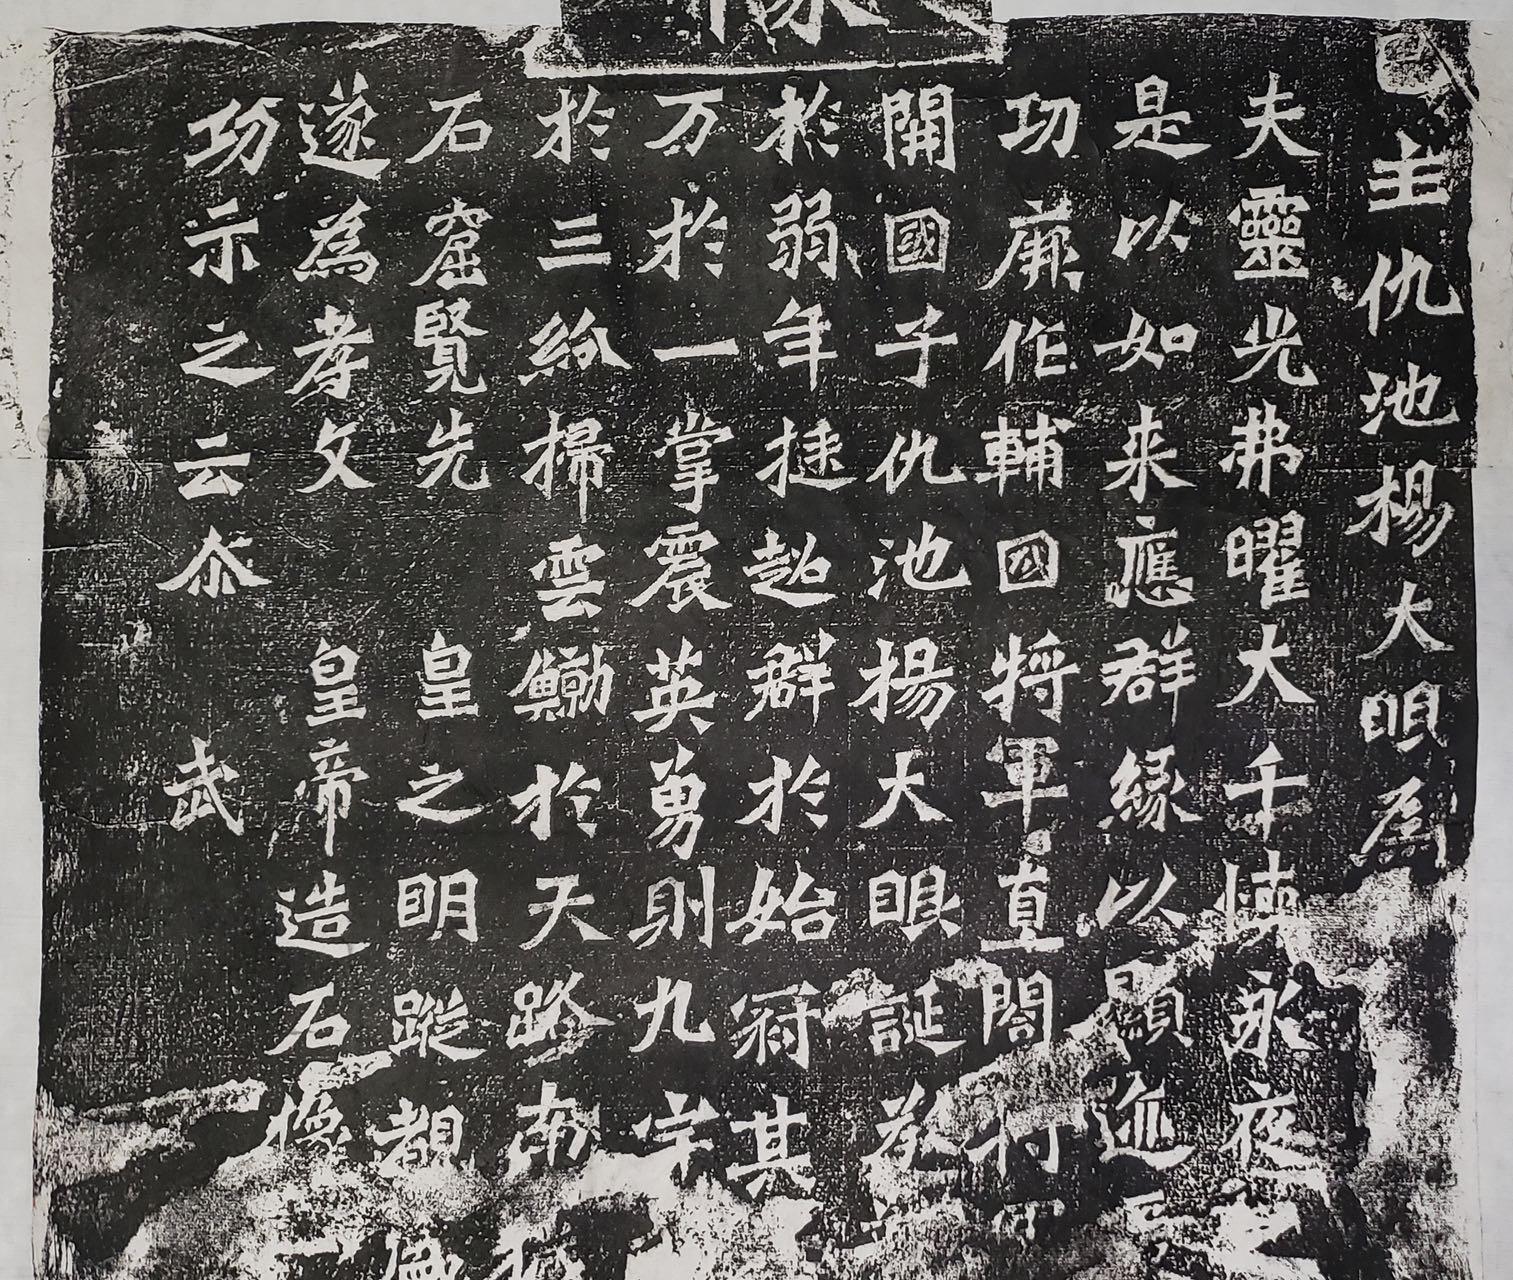 主仇池楊大眼為
夫靈光弗曜大千懷永夜之
是以如来應群緣以顯迹
功厥作輔國將軍直閤將軍
開國子仇池楊大眼誕承
於弱年挺超群於始冠其
万於一掌震英勇則九宇
於三紛掃雲鯨於天路南
石窟覽先皇之明蹤覩盛
遂為孝文皇帝造石像
功示之云尒武